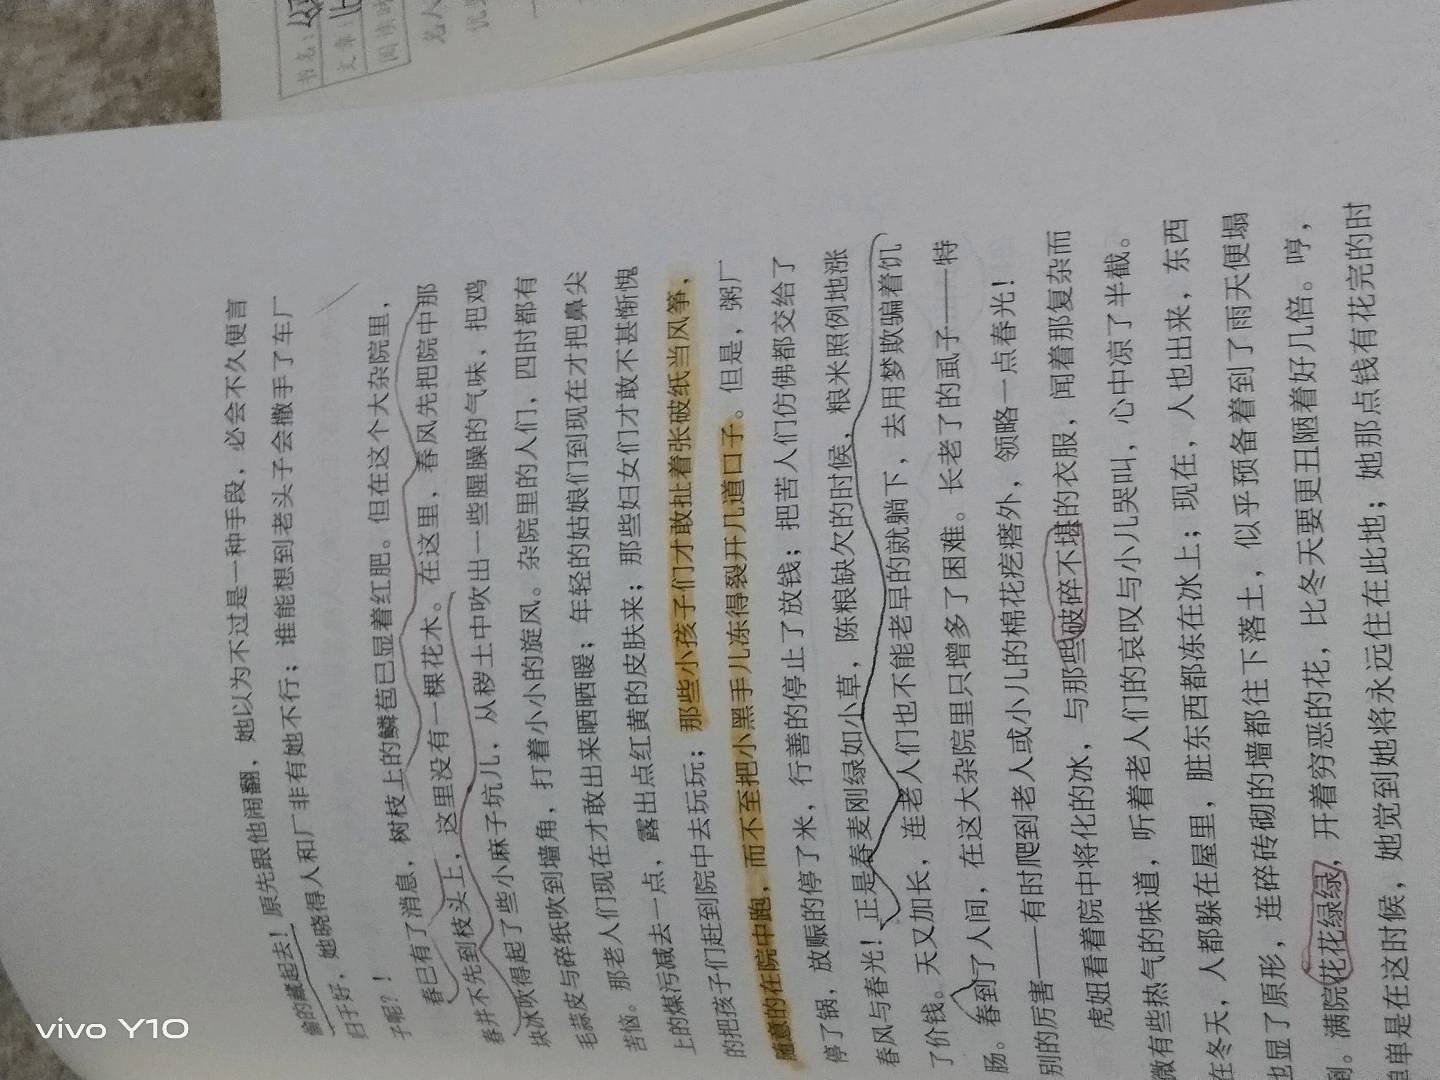 书名：
文章
阅读时
名人
优美
偷的藏起去！原先跟他闹翻，她以为不过是一种手段，必会不久便言
归于好，她晓得人和厂非有她不行；谁能想到老头子会撒手了车厂
子呢？！
春已有了消息，树枝上的鳞苞已显着红肥。但在这个大杂院里，
春并不先到枝头上，这里没有一棵花木。在这里，春风先把院中那
块冰吹得起了些小麻子坑儿，从秽土中吹出一些腥臊的气味，把鸡
毛蒜皮与碎纸吹到墙角，打着小小的旋风。杂院里的人们，四时都有
苦恼。那老人们现在才敢出来晒晒暖；年轻的姑娘们到现在才把鼻尖
上的煤污减去一点，露出点红黄的皮肤来；那些妇女们才敢不甚惭愧
的把孩子们赶到院中去玩玩；那些小孩子们才敢扯着张破纸当风筝，
随意的在院中跑，而不至把小黑手儿冻得裂开几道口子。但是，粥厂
停了锅，放赈的停了米，行善的停止了放钱；把苦人们仿佛都交给了
春风与春光！正是春麦刚绿如小草，陈粮缺欠的时候，粮米照例地涨
了价钱。天又加长，连老人们也不能老早的就躺下，去用梦欺骗着饥
肠。春到了人间，在这大杂院里只增多了困难。长老了的虱子——特
别的厉害——有时爬到老人或小儿的棉花疙瘩外，领略一点春光！
虎妞看着院中将化的冰，与那些破碎不堪的衣服，闻着那复杂而
微有些热气的味道，听着老人们的哀叹与小儿哭叫，心中凉了半截。
在冬天，人都躲在屋里，脏东西都冻在冰上；现在，人也出来，东西
也显了原形，连碎砖砌的墙都往下落土，似乎预备着到了雨天便塌
倒。满院花花绿绿，开着穷恶的花，比冬天要更丑陋着好几倍。哼，
单单是在这时候，她觉到她将永远住在此地；她那点钱有花完的时
vivo Y10